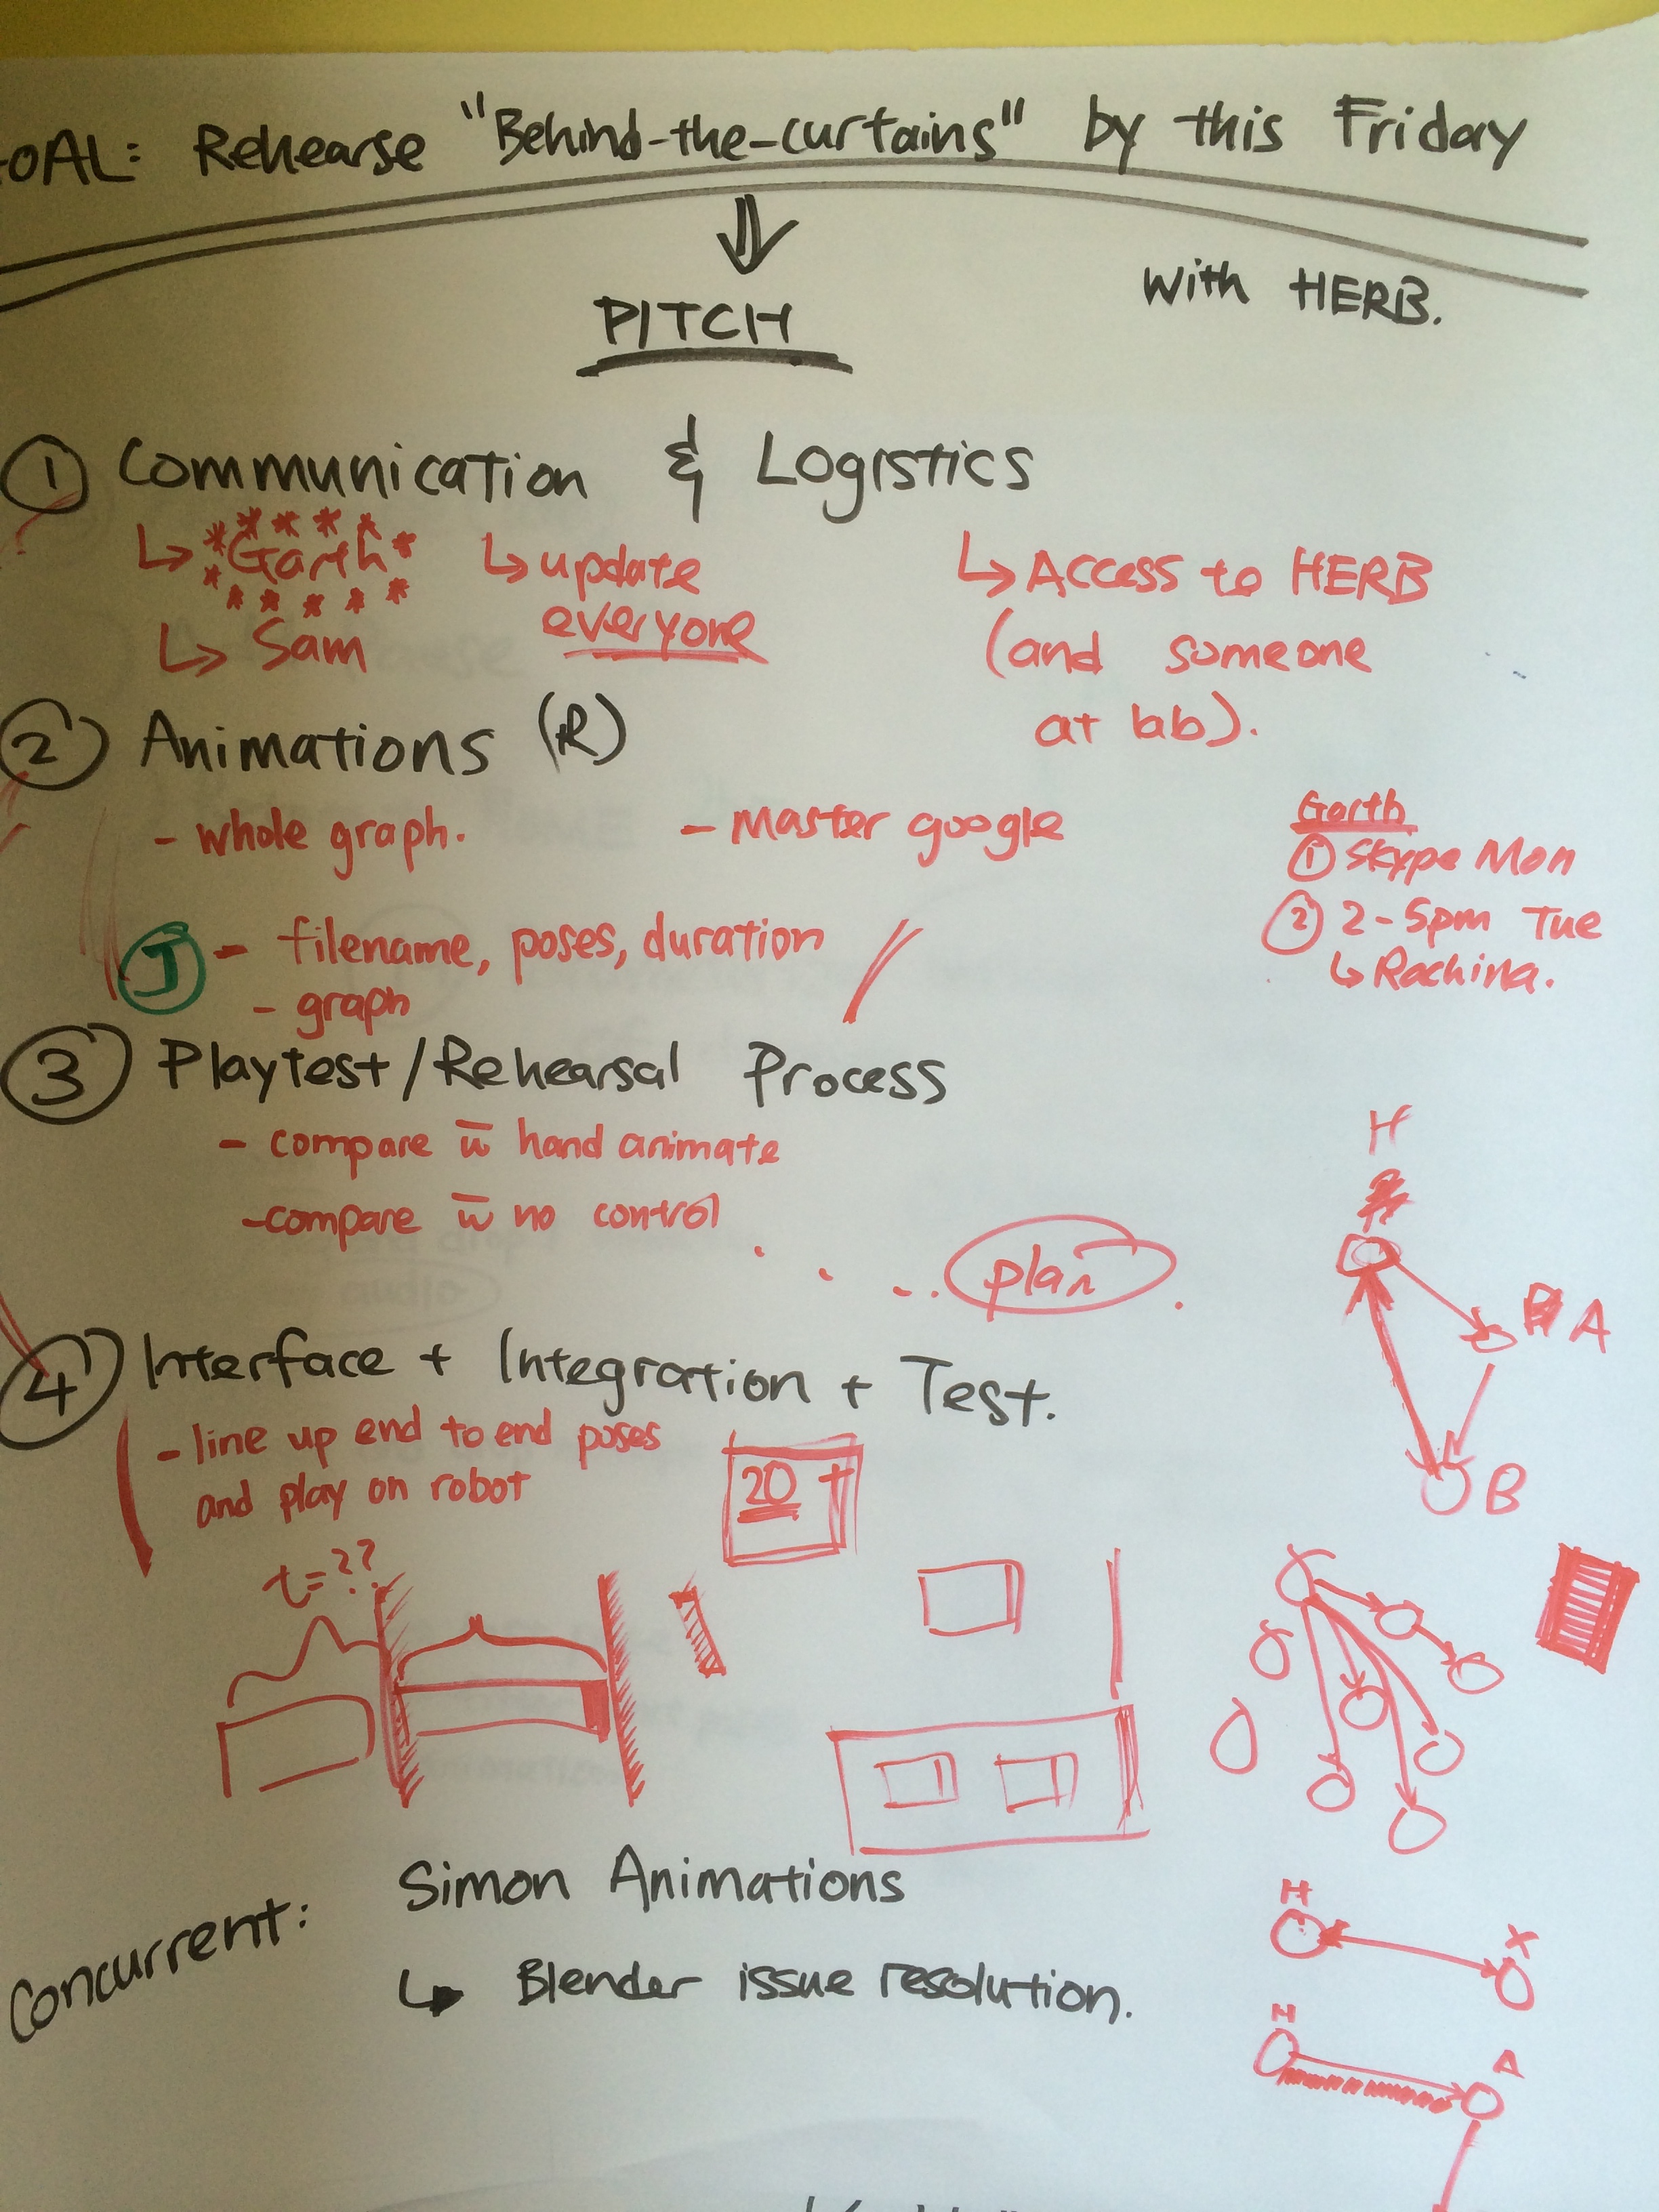 OAL: Rehearse "Behind-the-curtains" by this Friday
PITCH
with HERB.
1 Communication & Logistics
Garth
Sam
update
everyone
Access to HERB
(and someone
at lab).
2 Animations (R)
- whole graph.
- Master google
J - filename, poses, duration
- graph
Garth
1 Skype Mon
2 2-5pm Tue
Rachina.
3 Playtest/Rehearsal Process
- compare w̅ hand animate
- compare w̅ no control
... plan.
H
A
B
4 Interface + Integration + Test.
- line up end to end poses
and play on robot
20 +
t=??
Concurrent: Simon Animations
Blender issue resolution.
H
X
H
A